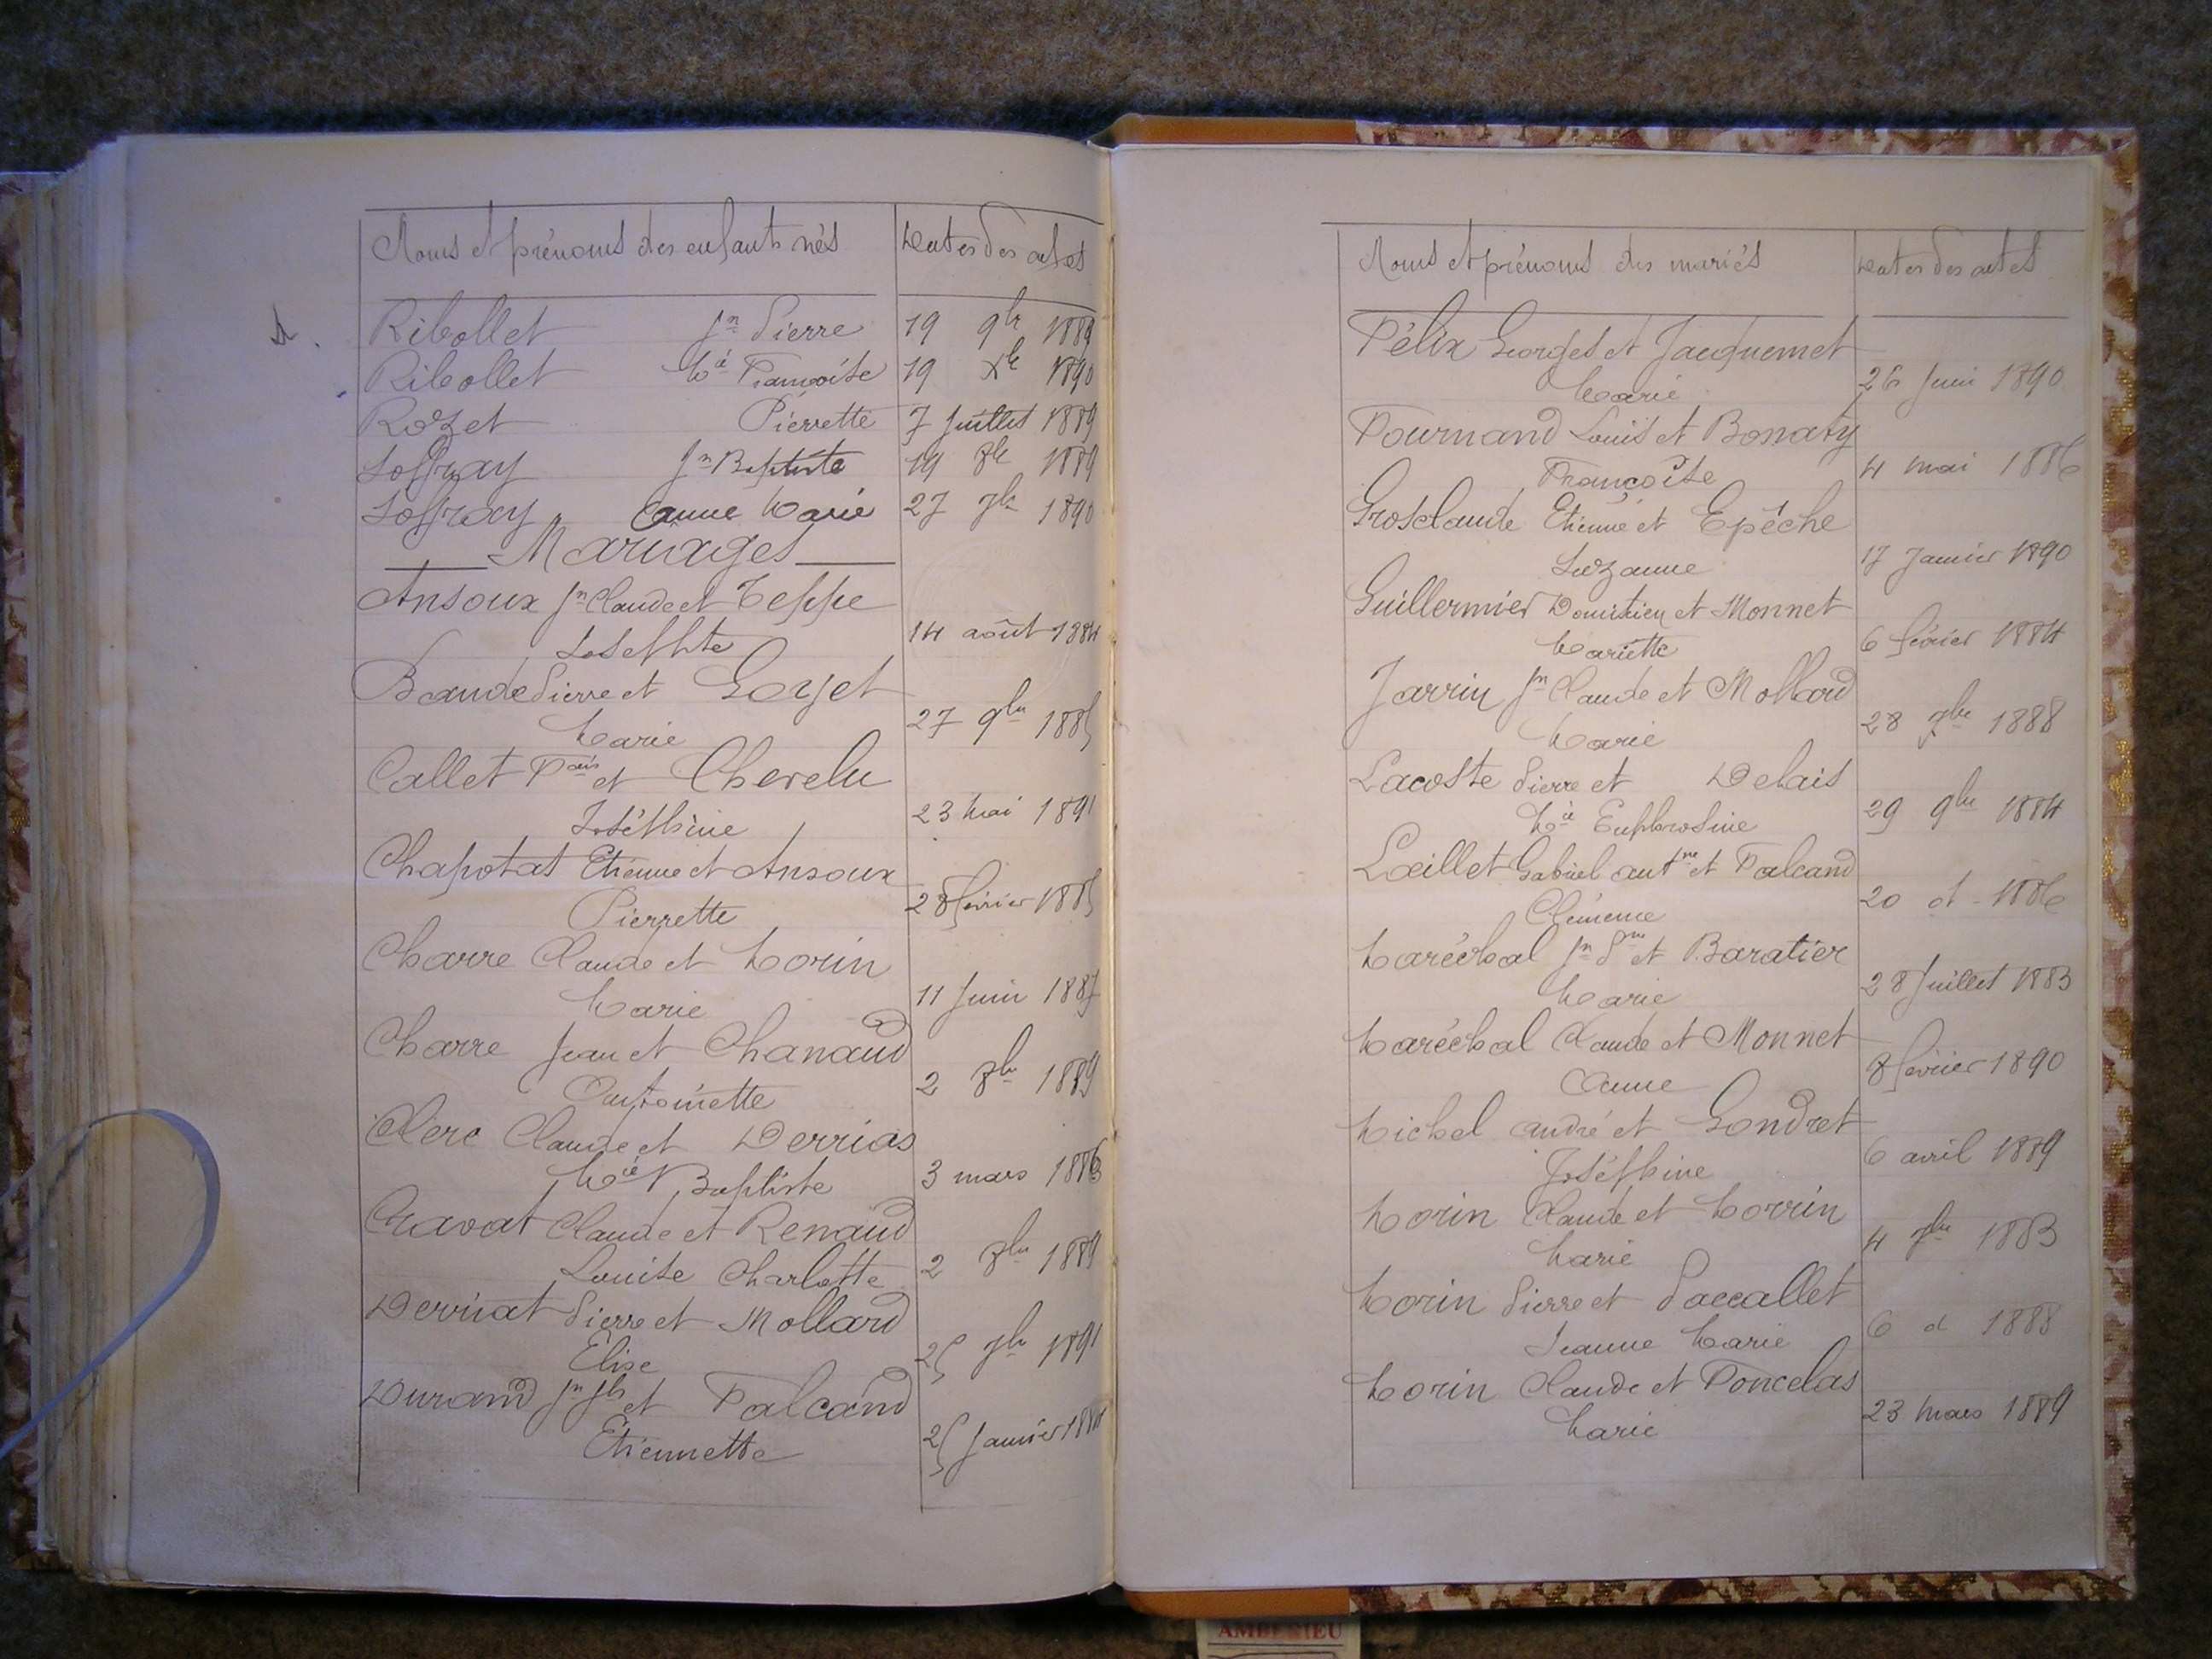 Noms et prénoms des enfants nés Dates des actes
Ribollet Jn Pierre 19 9bre 1889
Ribollet Mie Françoise 19 Xbre 1890
Rozet Pierrette 7 Juillet 1889
Soffray Jn Baptiste 19 8bre 1889
Soffray Anne Marie 27 7bre 1890
Mariages
Ansoux Jn Claude et Teppe
Josephte 14 août 1884
Bande Pierre et Goyet
Marie 27 9bre 1885
Callet Fçois et Chevelu
Joséphine 23 Mai 1891
Chapotat Etienne et Ansoux
Pierrette 28 février 1885
Charre Claude et Morin
Marie 11 Juin 1887
Charre Jean et Chanaud
Antoinette 2 8bre 1889
Clerc Claude et Derrias
Mie Baptiste 3 mars 1886
Cravat Claude et Renaud
Louise Charlotte 2 8bre 1889
Dervieat Pierre et Mollard
Elise 25 7bre 1891
Durand Jn Jh et Falcand
Etiennette 25 Janvier 1884
Noms et prénoms des mariés Dates des actes
Félix Georges et Jacquemet
Marie 26 Juin 1890
Fournand Louis et Bonaty
Françoise 4 mai 1886
Grosclaude Etienne et Epêche
Suzanne 17 Janvier 1890
Guillermier Domitien et Monnet
Mariette 6 février 1884
Jarrin Jn Claude et Mollard
Marie 28 7bre 1888
Lacoste Pierre et Delais
Mie Euphrosine 29 9bre 1884
Lœillet Gabriel antne et Falcand
Clémence 20 d 1886
Maréchal Jn Pre et Baratier
Marie 28 Juillet 1883
Maréchal Claude et Monnet
Anne 8 février 1890
Michel andré et Gondret
Joséphine 6 avril 1889
Morin Claude et Morrin
Marie 4 7bre 1883
Morin Pierre et Paccallet
Jeanne Marie 6 d 1888
Morin Claude et Poncelas
Marie 23 Mars 1889